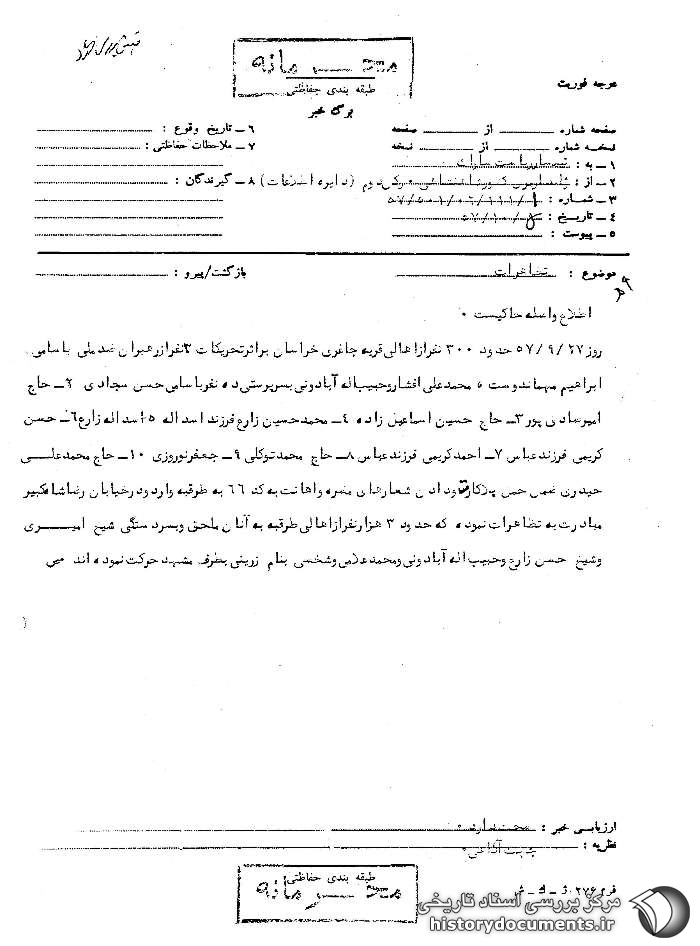 محـــرمانه
طبقه بندی حفاظتی
درجه فوریت
برگ خبر
صفحه شماره از صفحه
نسخه شماره از نسخه
۱ـ به :
۲ـ از : (دایره اطلاعات)
۳ـ شماره :
٤ـ تاریخ :
٥ـ پیوست :
٦ـ تاریخ وقوع :
۷ـ ملاحظات حفاظتی :
۸ـ گیرندگان :
موضوع : تظاهرات بازگشت/پیرو :
اطلاع واصله حاکیست ۰
روز ۵۷/۹/۲۷ حدود ۳۰۰ نفر از اهالی قریه جاغری خراسان براثر تحریکات ۲نفر از رهبران ضد ملی باسامی
ابراهیم میهماندوست ه محمدعلی افشار وحبیب اله آبادونی بسرپرستی ده نفر باسامی حسن سجادی ۲ـ حاج
امیر سادی پور ۳ـ حاج حسین اسماعیل زاده ٤ـ محمدحسین زارع فرزند اسداله ۵ـ اسداله زارع ٦ـ حسن
کریمی فرزند عباس ۷ـ احمد کریمی فرزند عباس ۸ـ حاج محمد توکلی ۹ـ جعفر نوروزی ۱۰ـ حاج محمدعلـــی
حیدری ضمن حمل پلاکارت ودادن شعارهای مضره واهانت به کد ٦٦ به طرقبه وارد ودرخیابان رضاشاه کبیر
مبادرت به تظاهرات نموده که حدود ۳ هزار نفر از اهالی طرقبه به آنان ملحق وبسردستگی شیخ امیـــری
وشیخ حسن زارع وحبیب اله آبادونی ومحمد غلامی وشخصی بنام زرینی بطرف مشهد حرکت نموده اند ص
ارزیابی خبر : صحت دارد ۰
نظریه :
طبقه بندی حفاظتی
محـــرمانه
فرم ۲۷٦
مرکز بررسی اسناد تاریخی
historydocuments.ir